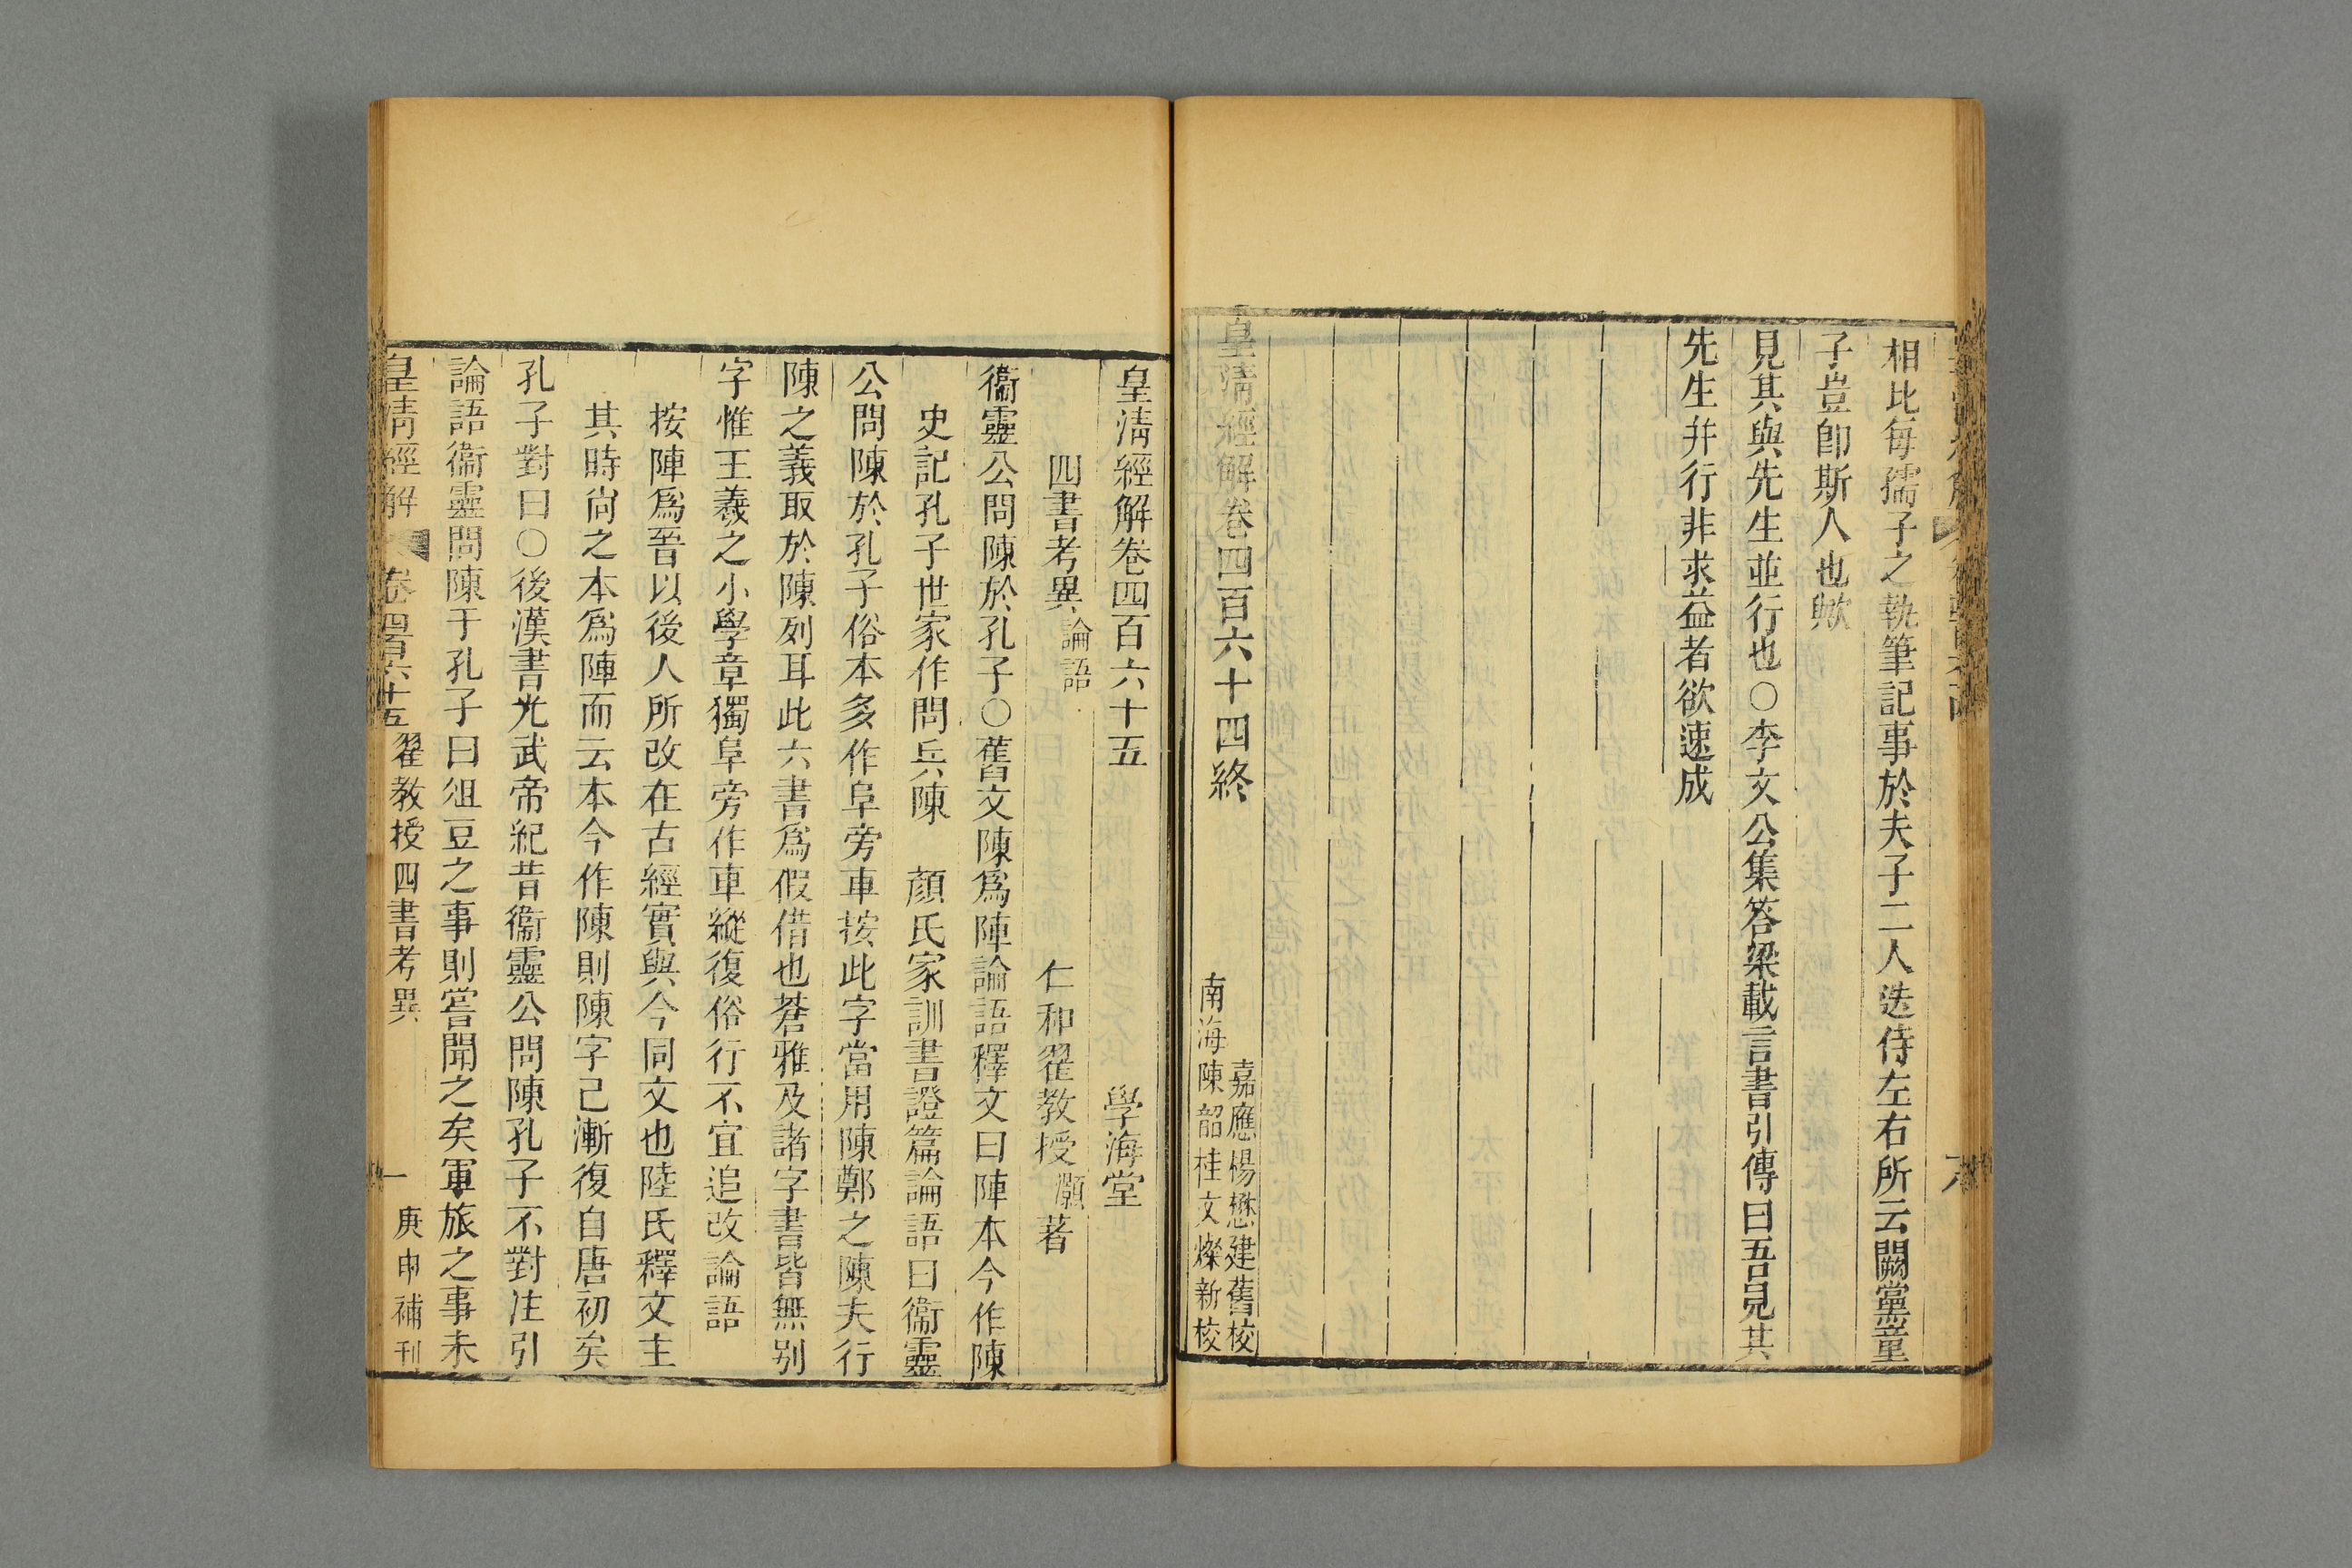 相比每孺子之執筆記事於夫子二人迭侍左右所云闕黨童
子豈卽斯人也歟
見其與先生並行也○李文公集答梁載言書引傳曰吾見其
先生幷行非求益者欲速成
皇清經解卷四百六十四終
嘉應楊懋建舊校
南海陳韶桂文燦新校
皇清經解卷四百六十五
學海堂
四書考異論語
仁和翟教授灝著
衞靈公問陳於孔子○舊文陳爲陣論語釋文曰陣本今作陳
史記孔子世家作問兵陳 顏氏家訓書證篇論語曰衞靈
公問陳於孔子俗本多作阜旁車按此字當用陳鄭之陳夫行
陳之義取於陳列耳此六書爲假借也蒼雅及諸字書皆無別
字惟王羲之小學章獨阜旁作車縱復俗行不宜追改論語
按陣爲晉以後人所改在古經實與今同文也陸氏釋文主
其時尙之本爲陣而云本今作陳則陳字已漸復自唐初矣
孔子對曰○後漢書光武帝紀昔衞靈公問陳孔子不對注引
論語衞靈問陳于孔子曰俎豆之事則嘗聞之矣軍旅之事未
皇清經解
卷四百六十五
翟教授四書考異
一
庚申補刊